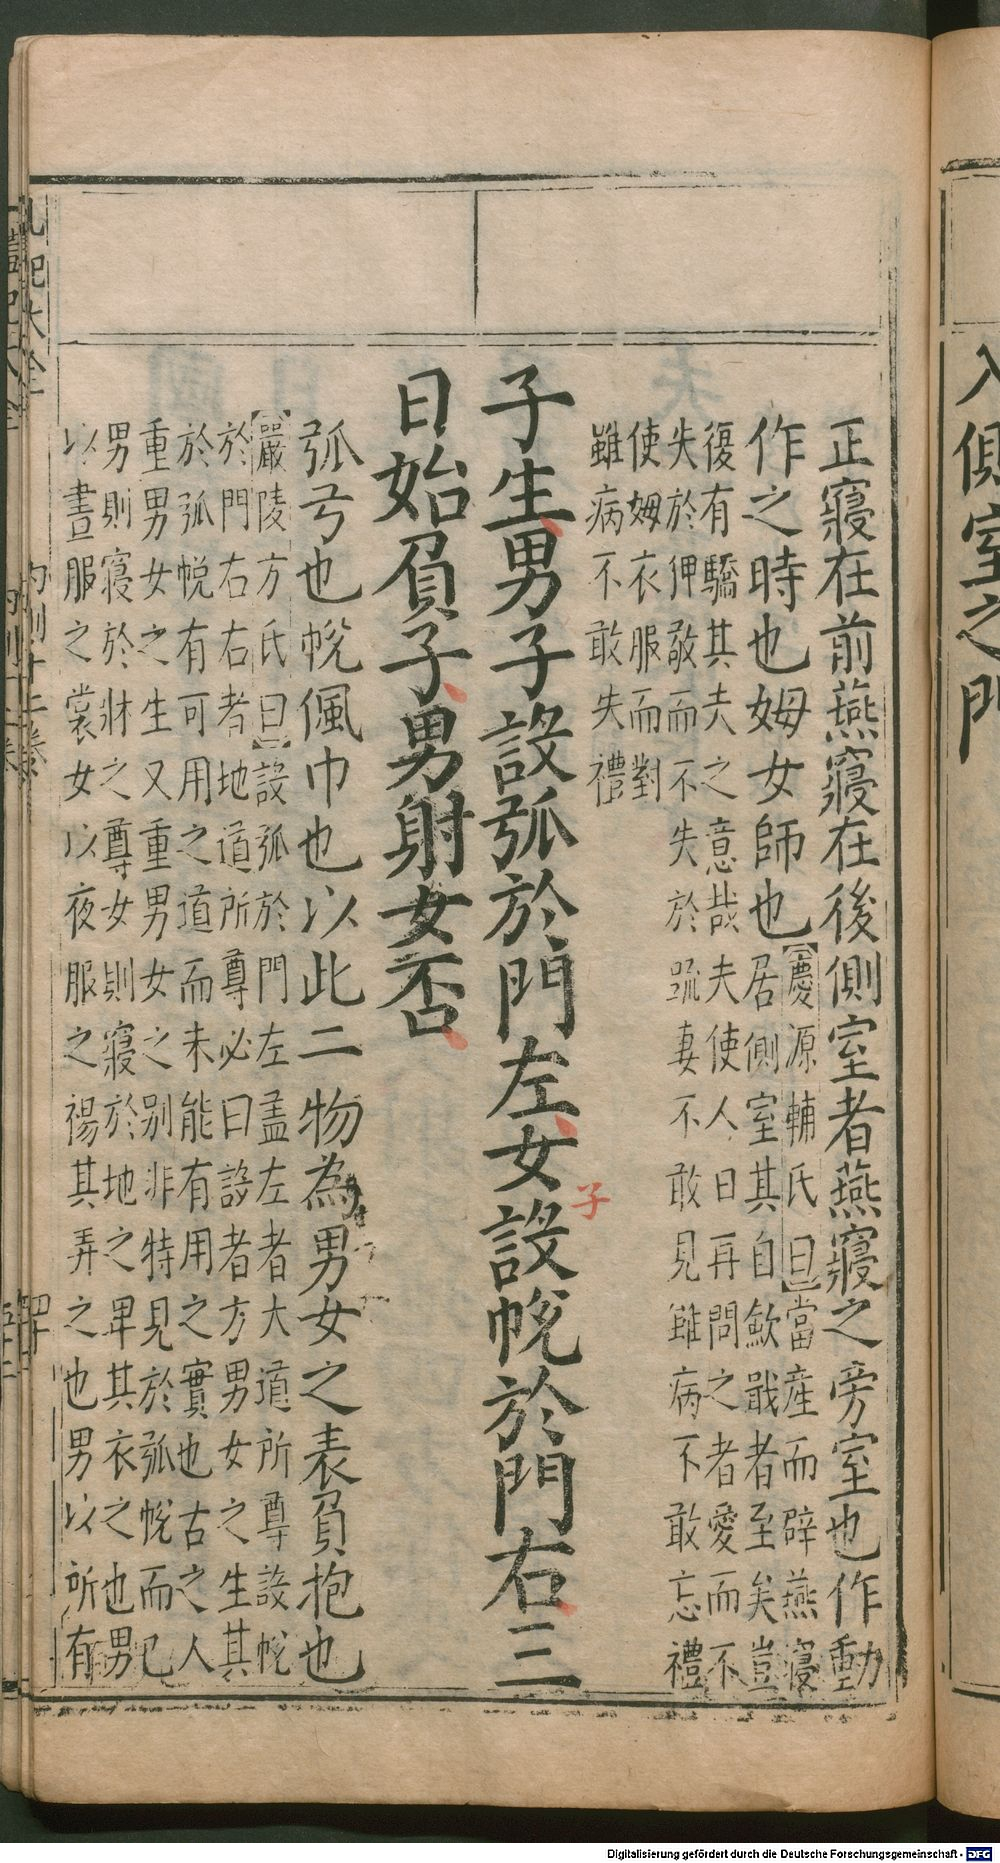 入側室之門
正寢在前燕寢在後側室者燕寢之旁室也作動
作之時也姆女師也
【慶源輔氏曰】當産而辟燕寢
居側室其自歛戢者至矣豈
復有驕其夫之意哉夫使人日再問之者愛而不
失於狎敬而不失於踈妻不敢見雖病不敢忘禮
使姆衣服而對
雖病不敢失禮
子生男子設弧於門左女設帨於門右三
子
日始負子男射女否
弧弓也帨佩巾也以此二物為男女之表負抱也
【嚴陵方氏曰】設弧於門左盖左者大道所尊設帨
於門右右者地道所尊必曰設者方男女之生其
於弧帨有可用之道而未能有用之實也古之人
重男女之生又重男女之别非特見於弧帨而已
男則寢於牀之尊女則寢於地之卑其衣之也男
以晝服之裳女以夜服之裼其弄之也男以所有
禮記大全
内則十二卷
Digitalisierung gefördert durch die Deutsche Forschungsgemeinschaft - DFG